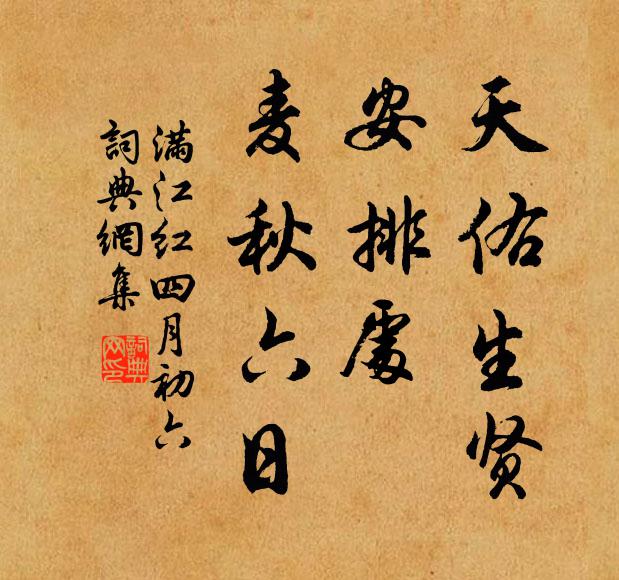 天佑生贤
安排處
麦秋六日
满江红四月初六
詞典網集
詞典
网印